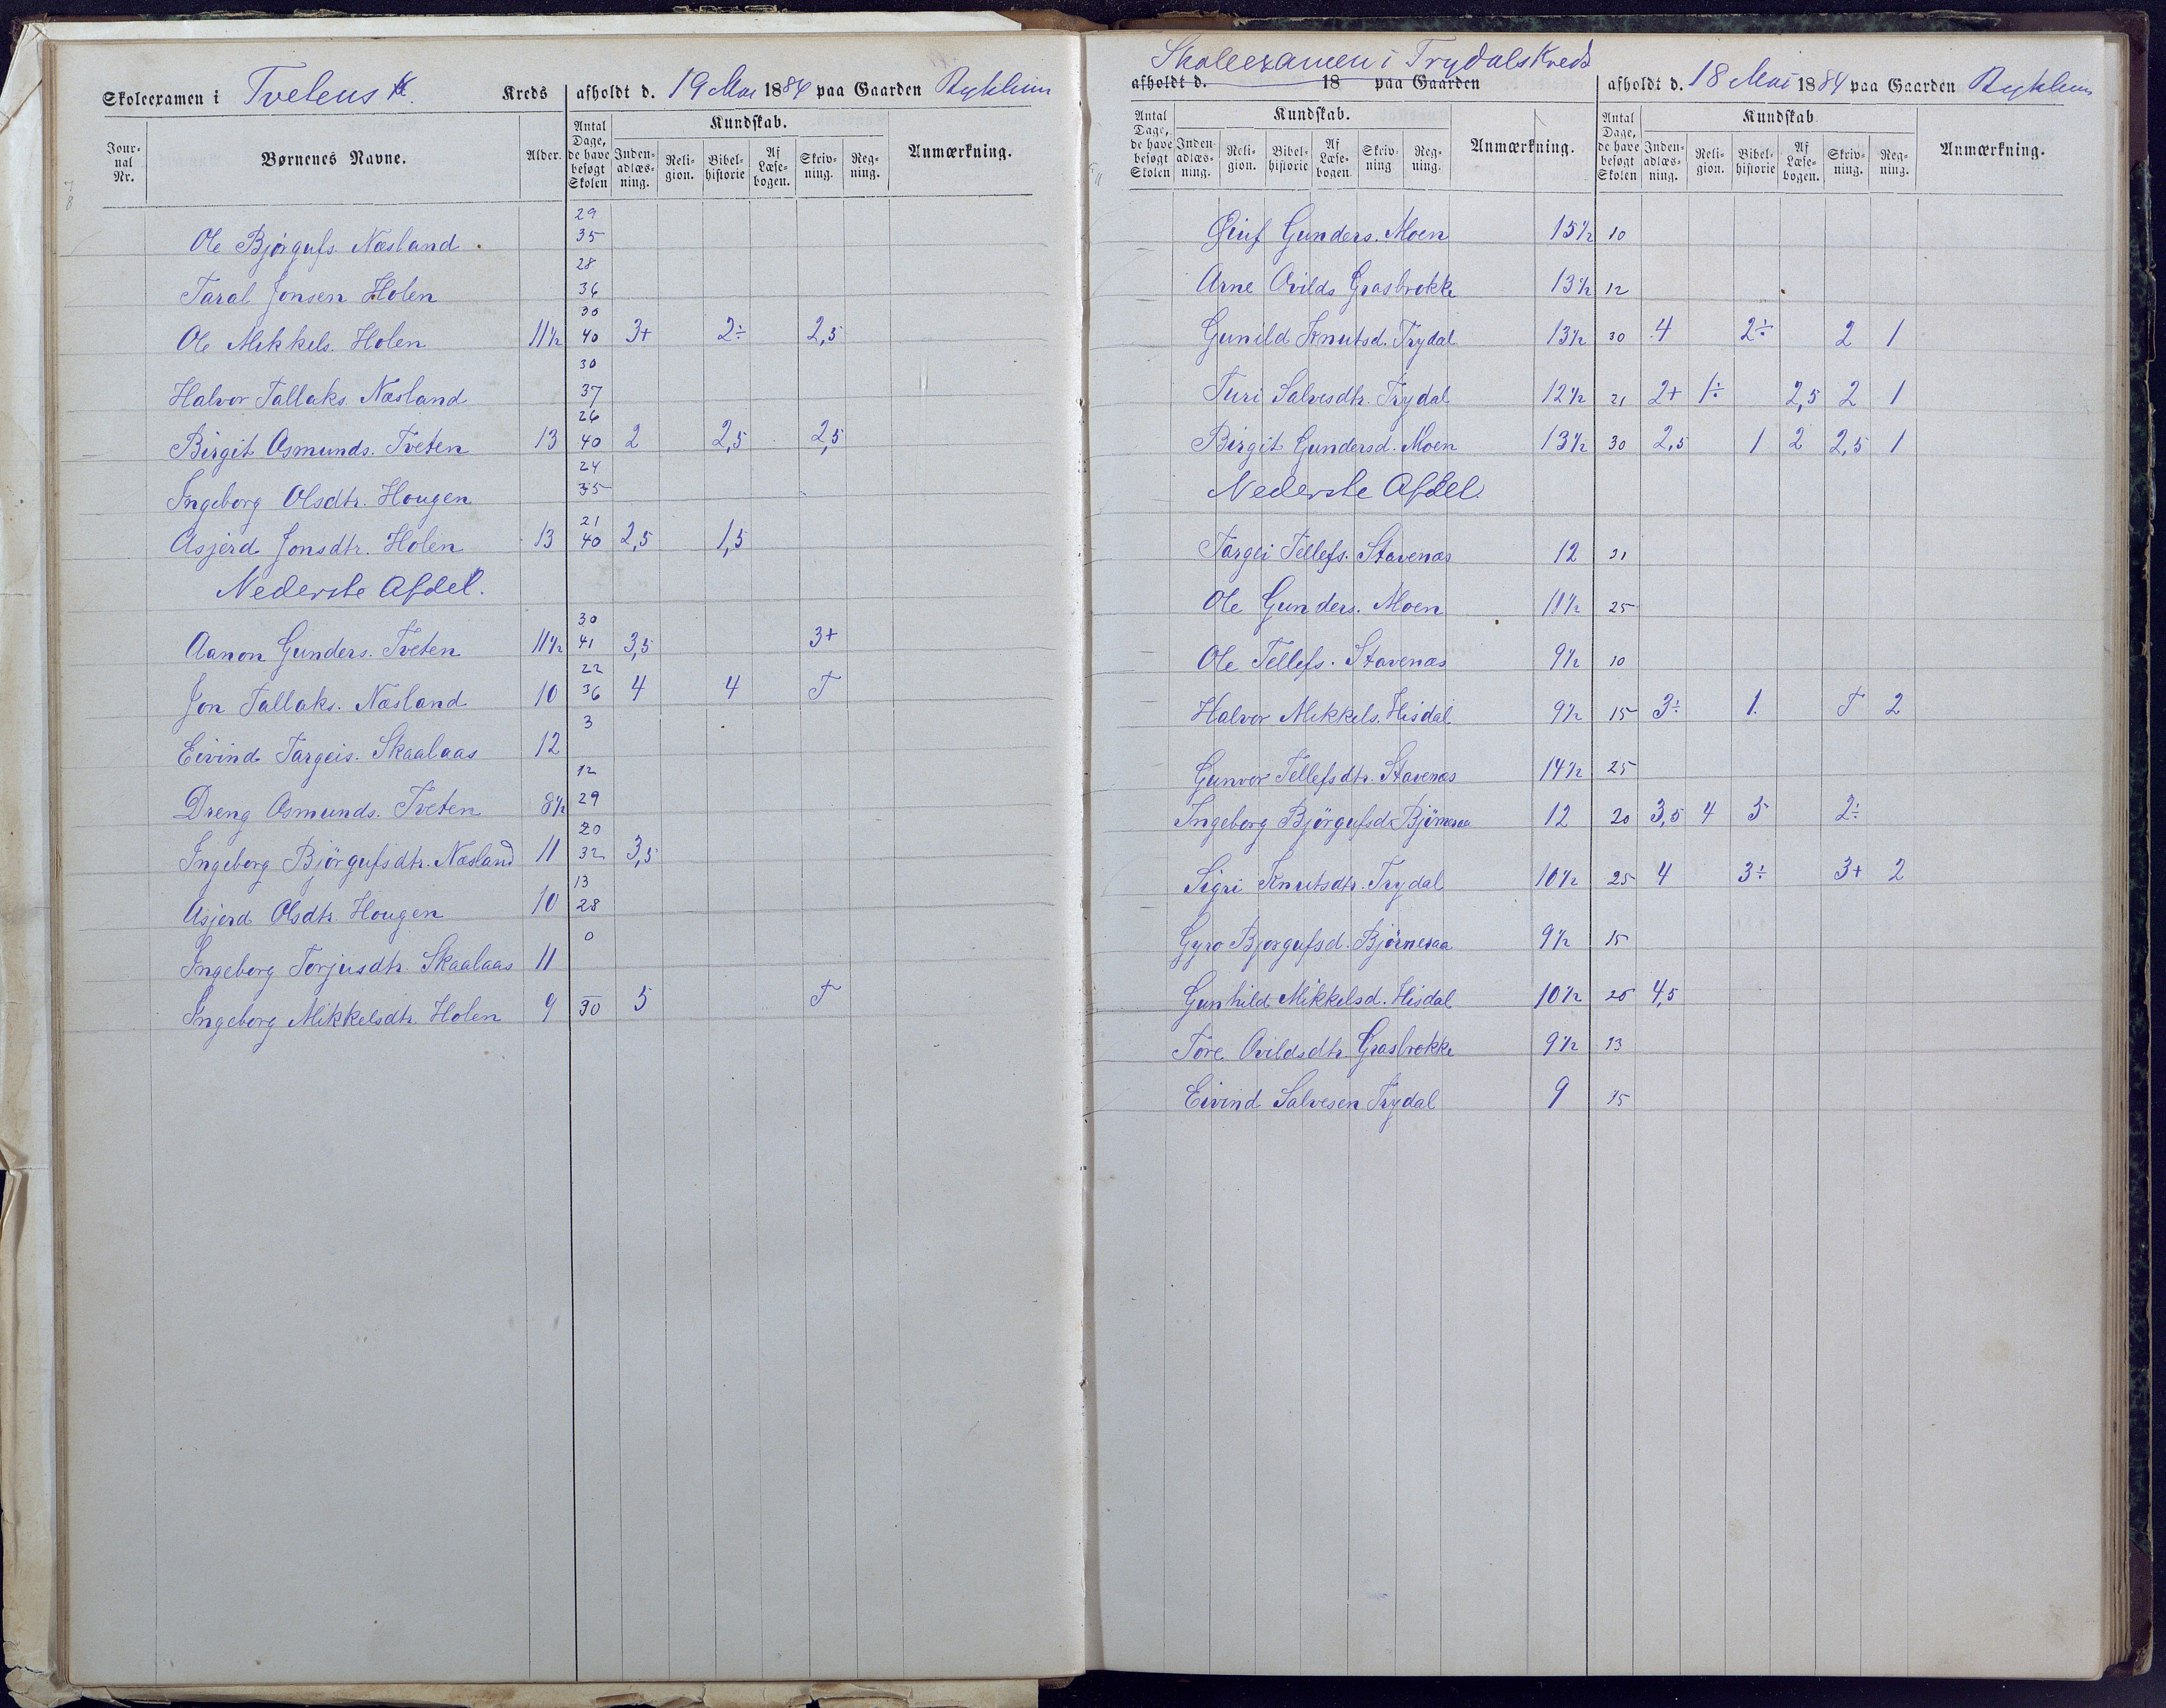 Skoleexamen i Tvetens K. Kreds afholdt d. 19 Mai 1884 paa Gaarden Rykhum
Jour-nal Nr. Børnenes Navne. Alder. Antal Dage, de have besøgt Skolen Kundskab. Inden-adlæs-ning. Reli-gion. Bibel-historie Af Læse-bogen. Skriv-ning. Reg-ning. Anmærkning.
Ole Bjørgufs. Næsland 29 35
Taral Jonsen Holen 28 36
Ole Mikkels. Holen 11½ 30 40 3+ 2÷ 2,5
Halvor Tallaks. Næsland 30 37
Birgit Osmunds. Tveten 13 26 40 2 2,5 2,5
Ingeborg Olsdtr. Hougen 24 35
Asjerd Jonsdtr. Holen 13 21 40 2,5 1,5
Nederste Afdel.
Aanon Gunders. Tveten 11½ 30 41 3,5 3+
Jon Tallaks. Næsland 10 22 36 4 4 T
Eivind Targeis. Skaalaas 12 3
Dreng Osmunds. Tveten 8½ 12 29
Ingeborg Bjørgufsdtr. Næsland 11 20 32 3,5
Asjerd Olsdtr. Hougen 10 13 28
Ingeborg Torjusdtr. Skaalaas 11 0
Ingeborg Mikkelsdtr. Holen 9 30 5 T
Skoleexamen i Trydals Kreds
afholdt d. 18 paa Gaarden afholdt d. 18 Mai 1884 paa Gaarden Rykhum
Antal Dage, de have besøgt Skolen Kundskab. Inden-adlæs-ning. Reli-gion. Bibel-historie Af Læse-bogen. Skriv-ning Reg-ning. Anmærkning. Antal Dage, de have besøgt Skolen Kundskab Inden-adlæs-ning. Reli-gion. Bibel-historie Af Læse-bogen. Skriv-ning. Reg-ning. Anmærkning.
Gunders. Moen 15½ 10
Arne Ovilds Grasbrokke 13½ 12
Gunild Knutsd. Trydal 13½ 30 4 2÷ 2 1
Turi Salvesdtr. Trydal 12½ 21 2+ 1÷ 2,5 2 1
Birgit Gundersd. Moen 13½ 30 2,5 1 2 2,5 1
Nederste Afdel.
Targei Tellefs. Stavenæs 12 21
Ole Gunders. Moen 11½ 25
Ole Tellefs. Stavenæs 9½ 10
Halvor Mikkels. Hisdal 9½ 15 3÷ 1. T 2
Gunvor Tellefsdtr. Stavenæs 14½ 25
Ingeborg Bjørgufsd. Bjørnaraa 12 20 3,5 4 5 2÷
Sigri Knutsdtr. Trydal 10½ 25 4 3÷ 3+ 2
Gyro Bjørgufsd. Bjørneraa 9½ 15
Gunhild Mikkelsd. Hisdal 10½ 20 4,5
Tore Ovildsdtr. Grasbrokke 9½ 13
Eivind Salvesen Trydal 9 15